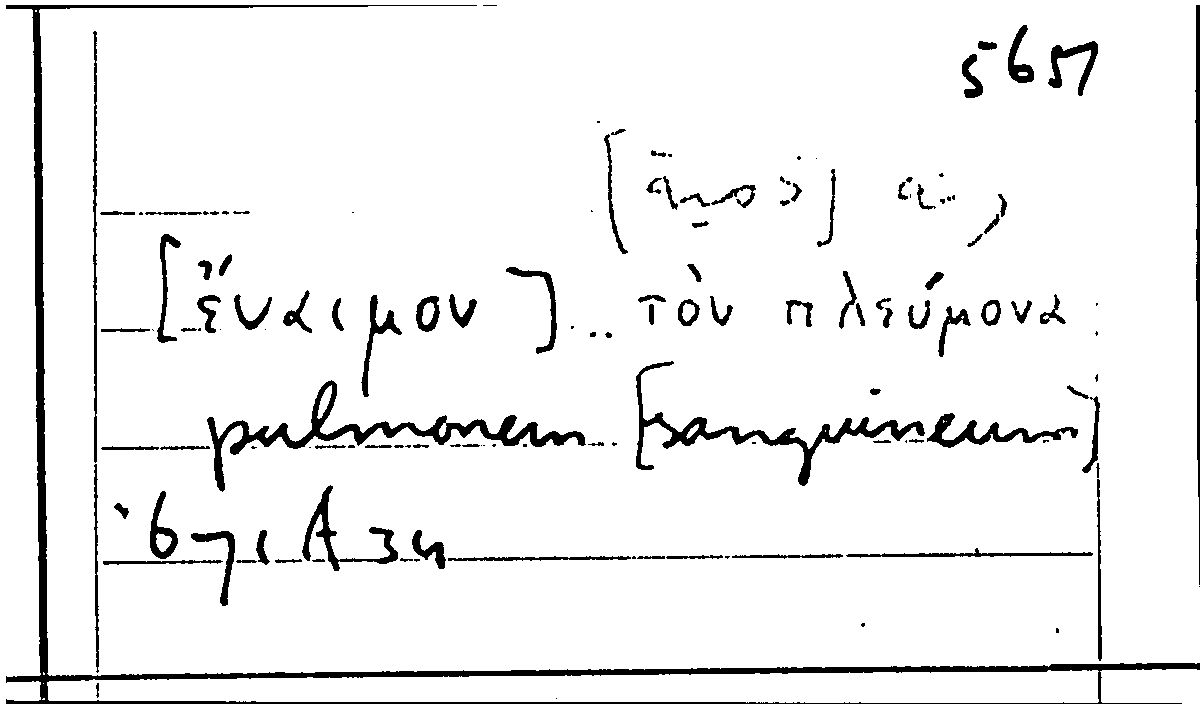 5657
[ἔναιμον] .. τὸν πλεύμονα
pulmonem [sanguineum]
671 A 34